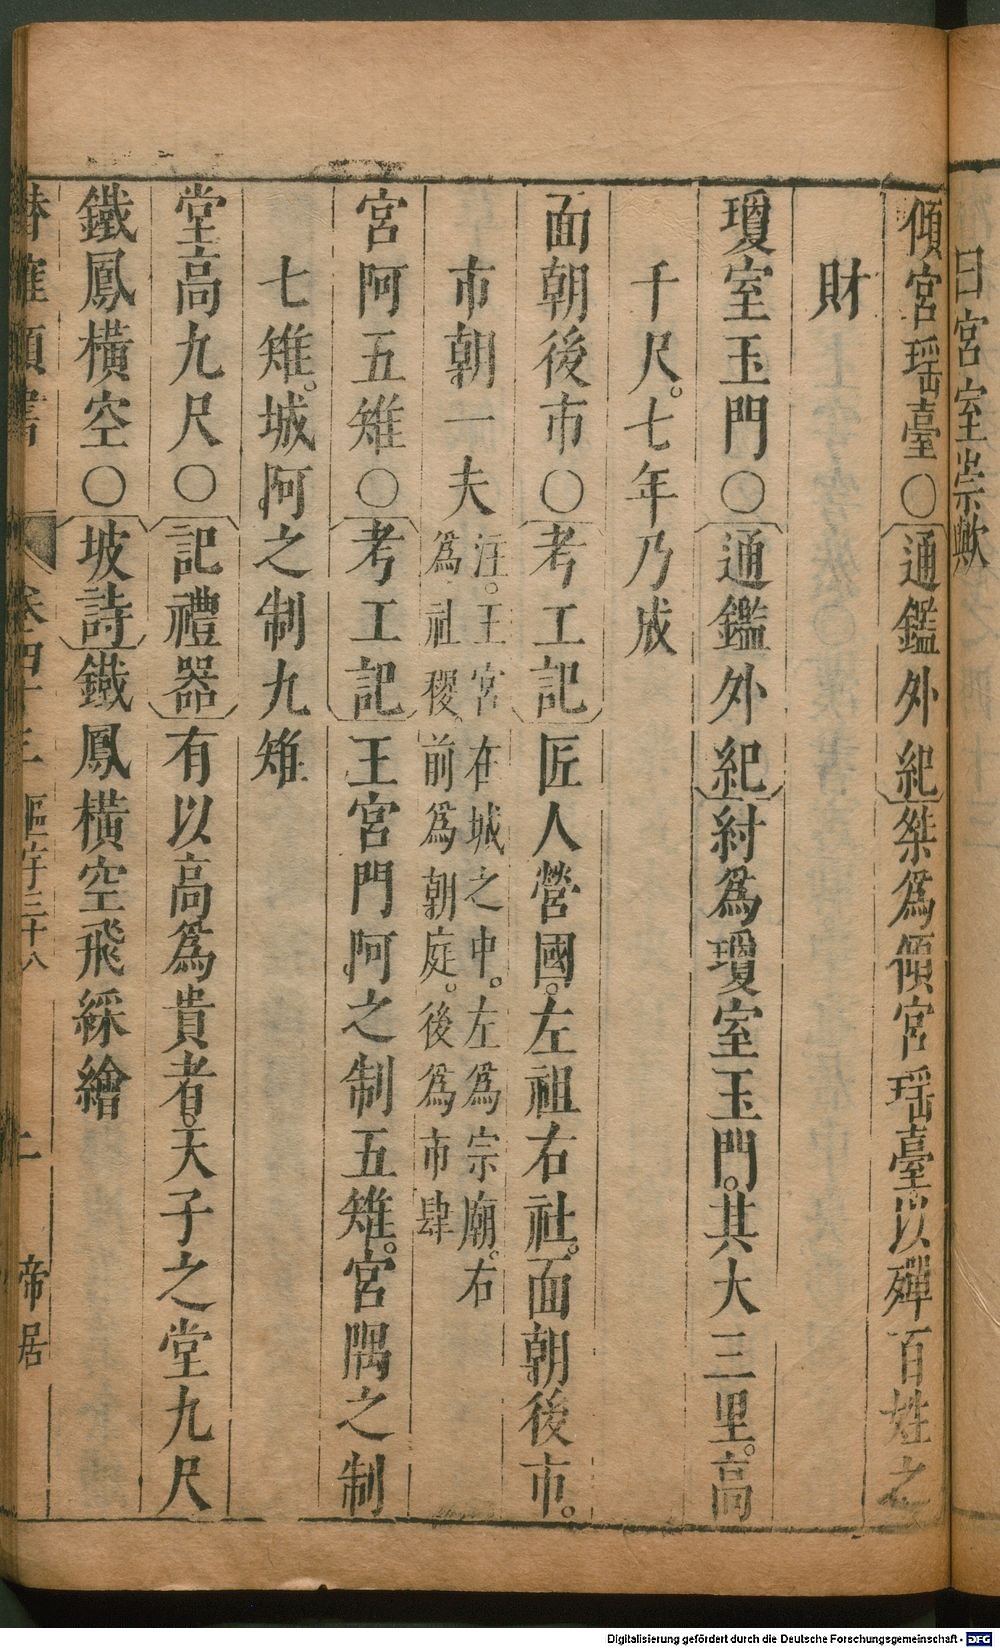 曰宮室崇歟
傾宮瑶臺○通鑑外紀桀爲傾宮瑶臺以殫百姓之
財
瓊室玉門○通鑑外紀紂爲瓊室玉門。其大三里。高
千尺。七年乃成
面朝後市○考工記匠人營國。左祖右社。面朝後市。
市朝一夫注。王宮在城之中。左爲宗廟。右
爲社稷前爲朝庭。後爲市肆
宮阿五雉○考工記王宮門阿之制五雉。宮隅之制
七雉。城阿之制九雉
堂高九尺○記禮器有以高爲貴者。天子之堂九尺
鐵鳳橫空○坡詩鐵鳳橫空飛綵繪
卷四十三 區宇三十八 二 帝居
Digitalisierung gefördert durch die Deutsche Forschungsgemeinschaft - DFG